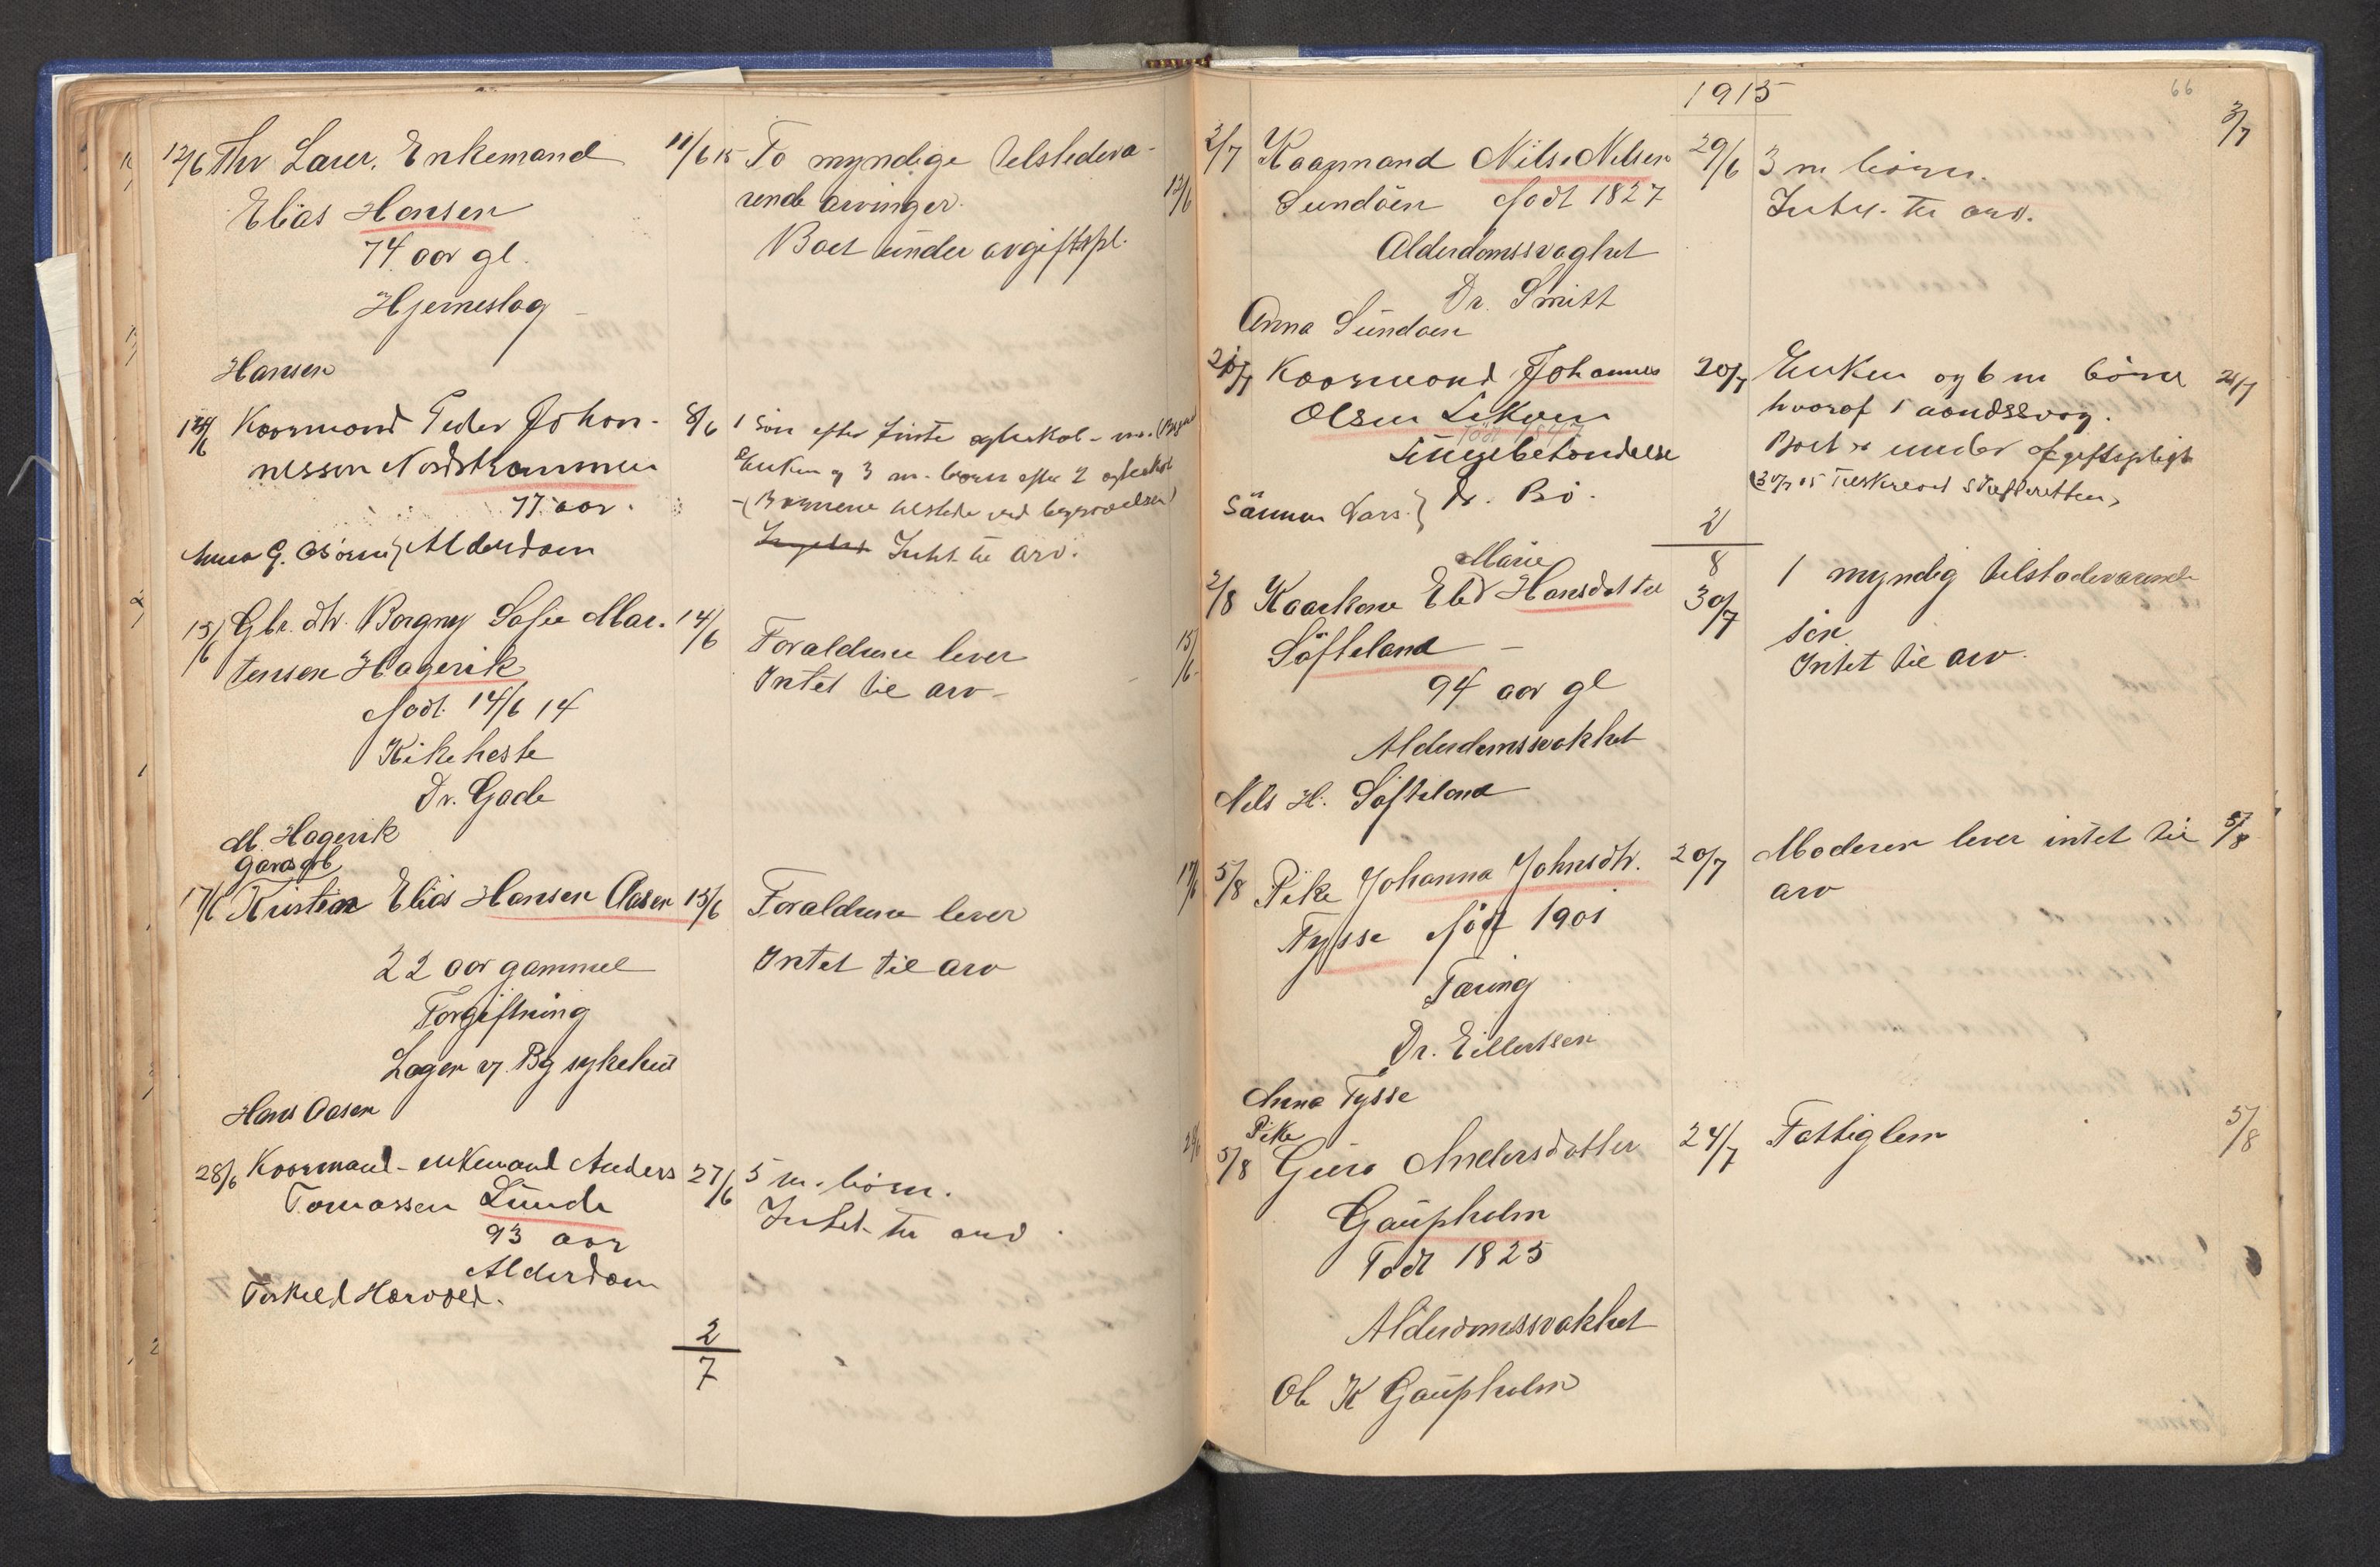 12/6 Fhv Lærer, Enkemand 11/6 15 To myndige tilstedevæ-
Elias Hansen rende arvinger. 12/6
74 aar gl. Boet under avgiftspl.
Hjerneslag
Hansen
Kaarmand Peder Johan- 8/6 1 søn efter første egteskab - m.
nessen Nordstrømmen Enken og 3 m. børn efter 2 egteskab
77 aar. - (Børnene tilstede ved begravelsen)
Alderdom Intet til arv.
15/6 Gbr. dtr. Borgny Sofie Mar- 14/6 Forældrene lever 15/6
tensen Hagerik Intet til arv -
født 14/6 14
Kikhoste
Dr. Gade
M. Hagerik
Gaardarb
17/6 Kristian Elias Hansen Aasen 15/6 Forældrene lever 17/6
22 aar gammel Intet til arv
Forgiftning
Læger v. Bg sykehus
Hans Aasen
28/6 Kaarmand - enkemand Anders 27/6 5 m. børn. 28/6
Tomassen Lunde Intet til arv.
93 aar
Alderdom
Torkild Harvold.
2/7
1915
66
2/7 Kaarmand Nils Nilsen 29/6 3 m børn. 3/7
Sundøen født 1827 Intet til arv.
Alderdomssvaghet
Dr. Smitt
Anna Sundøen
21/7 Kaarmand Johannes 20/7 Enken og 6 m børn 21/7
Olsen hvoraf 1 aandssvag.
født 1847 Boet er under afgiftspligt
Lungebetændelse (30/7 15 Tilskrevet Skifteretten)
Sønnen Lars. } Dr. Bø.
2/8
Marie
2/8 Kaarkone Eli Hansdatter 30/7 1 myndig tilstedeværende
Søfteland - søn
94 aar gl Intet til arv.
Alderdomssvakhet
Nils H. Søfteland
5/8 Pike Johanna Johnsdtr. 20/7 Moderen lever intet til 5/8
Tysse født 1901 arv
Tæring
Dr. Eilertsen
Anna Tysse
Pike
5/8 Guro Andersdatter 24/7 Fattiglem 5/8
Gaupholm
Født 1825
Alderdomssvakhet
Ole K Gaupholm